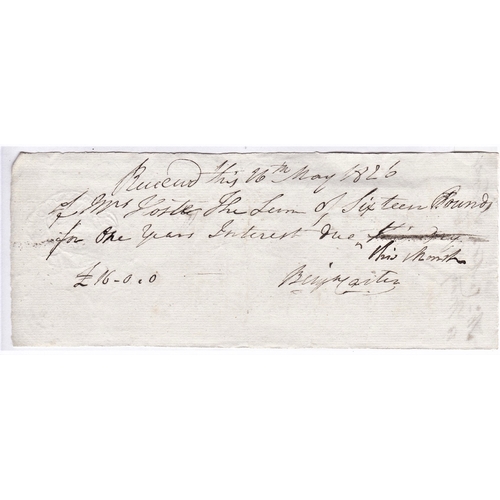 Received this 16th May 1826
of Mrs Foster The Sum of Sixteen Pounds
for One Years Interest due this day
this Month
£16-0.0
Benj Carter